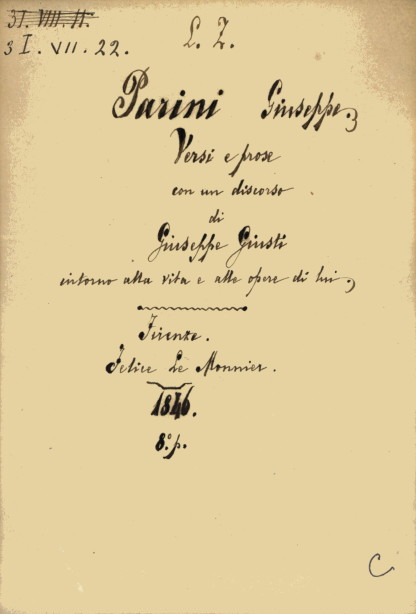 37. VIII. 11.
3 I. VII. 22.
L. Z.
Parini Giuseppe
Versi e prose
con un discorso
di
Giuseppe Giusti
intorno alla vita e alle opere di lui
Firenze.
Felice Le Monnier.
1846.
8.° p.
C